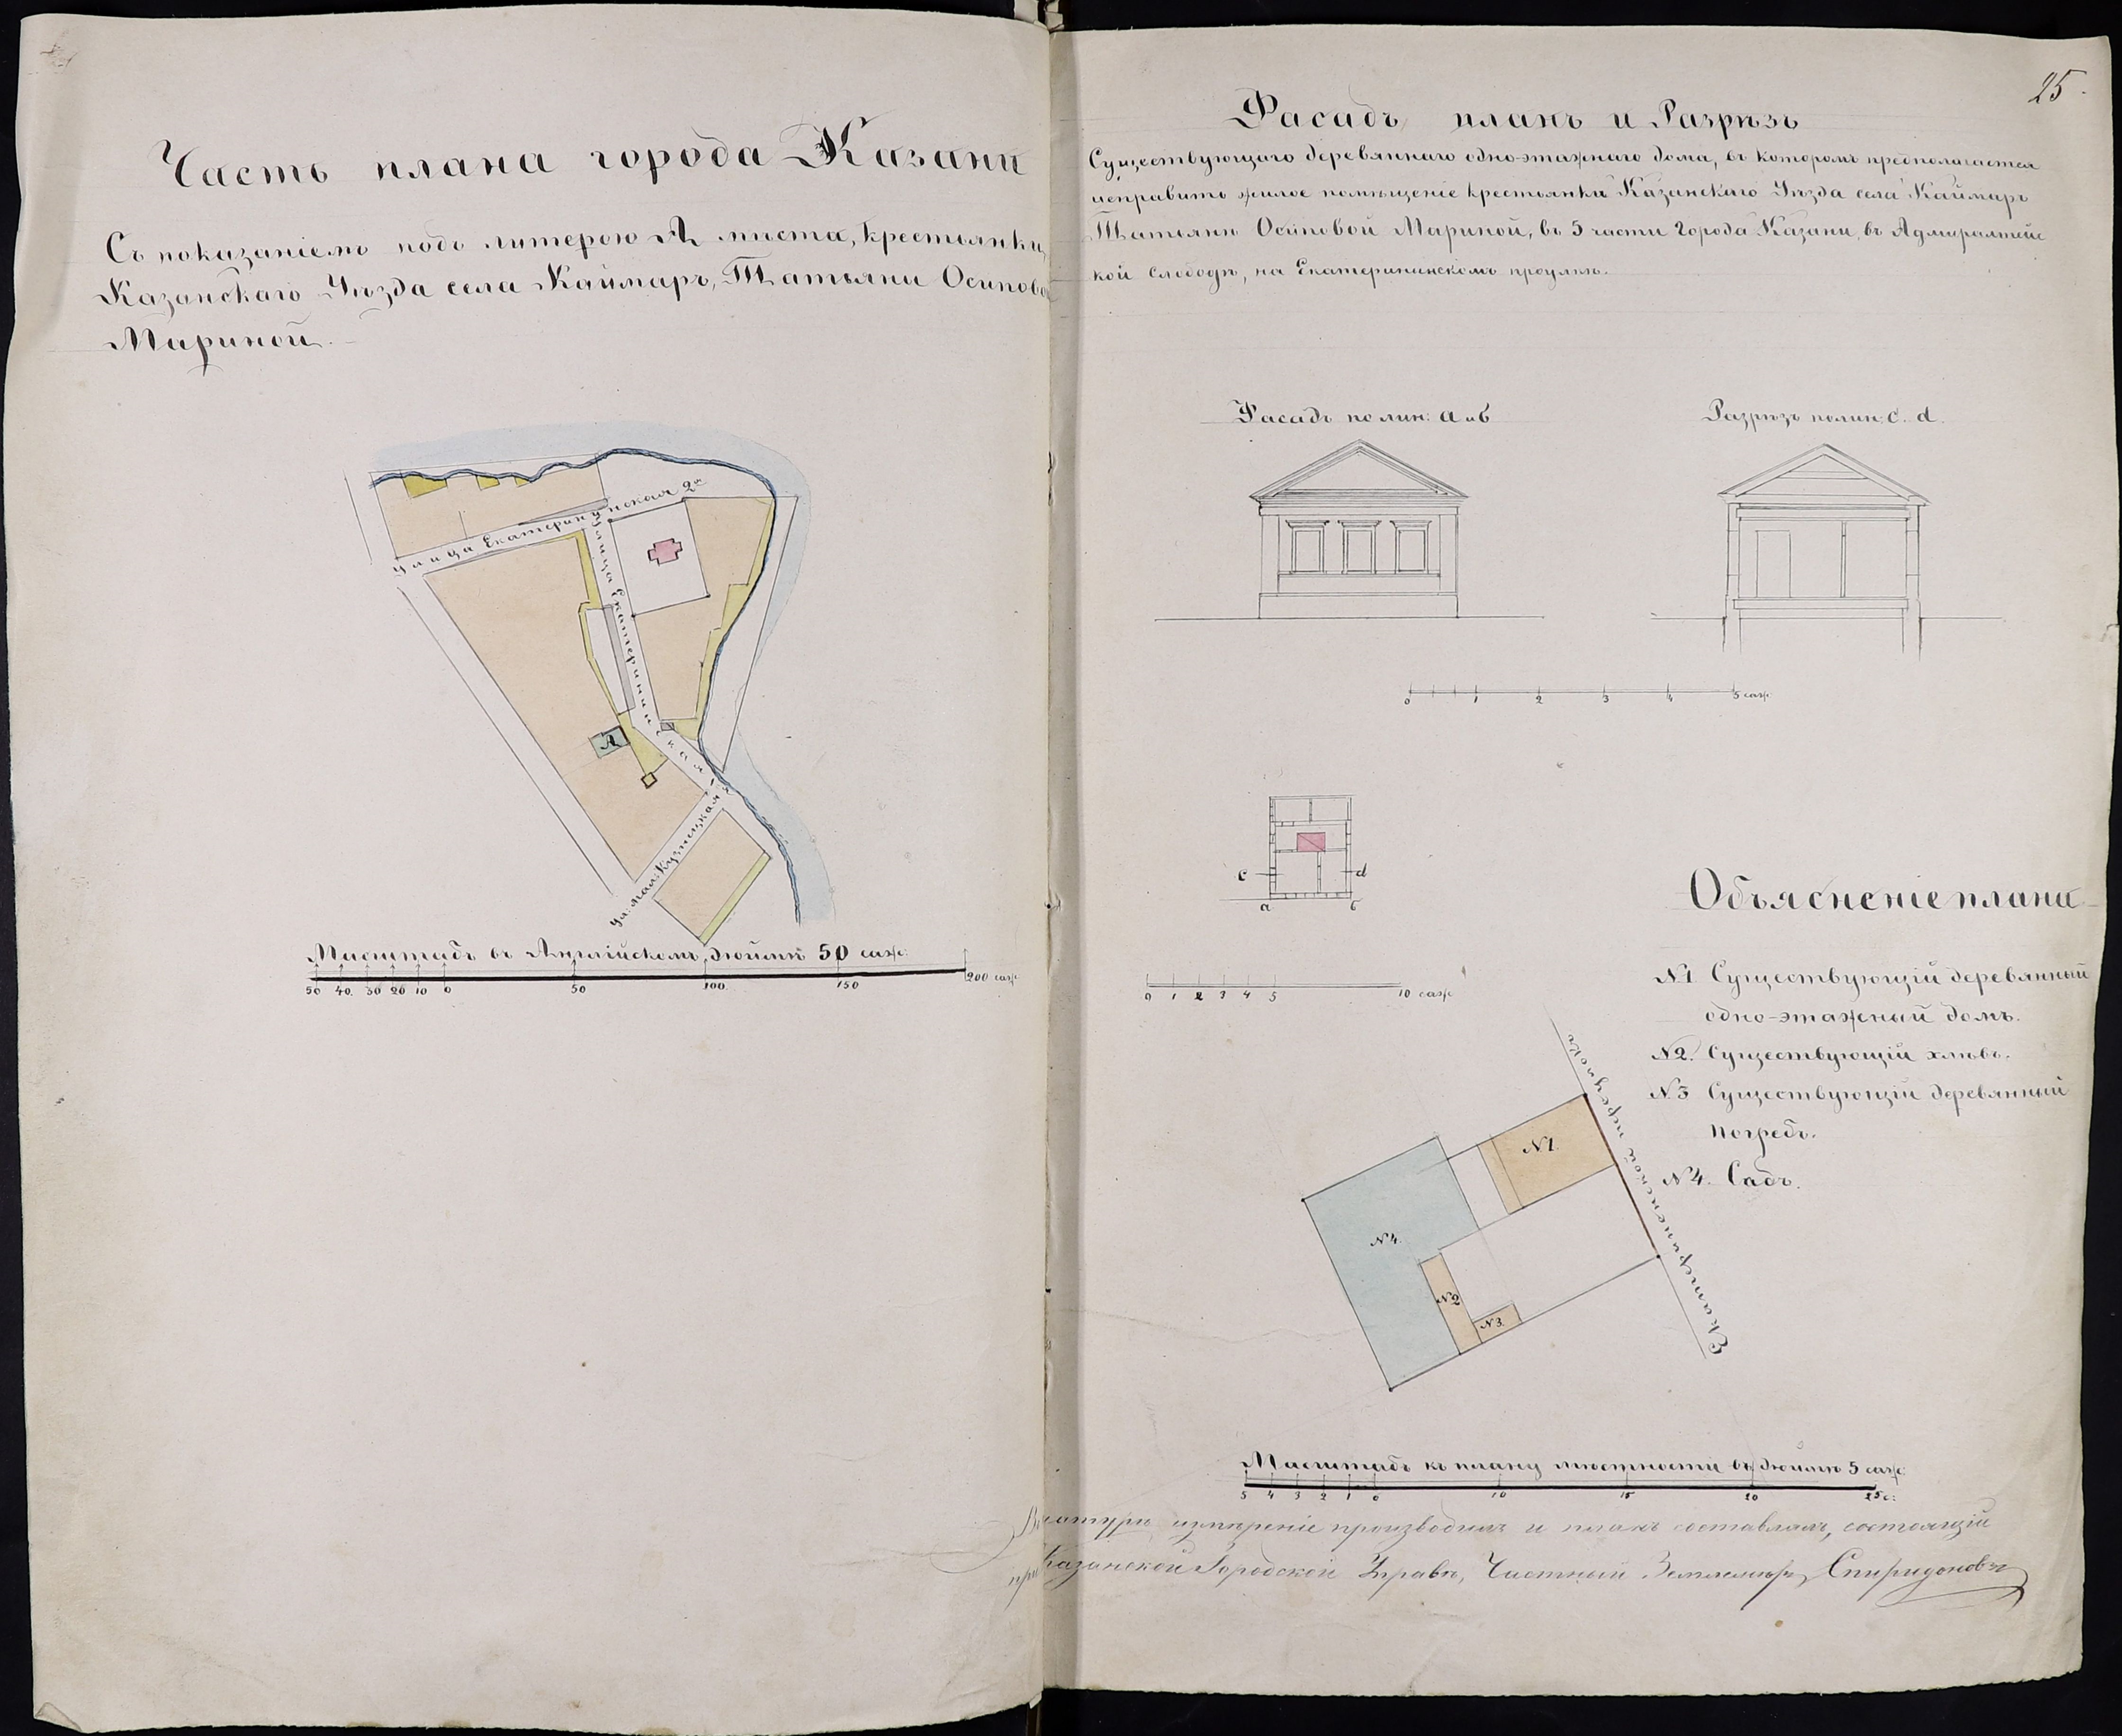 Часть плана города Казани
Съ показаніемъ подъ литерою А мѣста, крестьянки
Казанскаго Уѣзда села Каймаръ, Татьяны Осиповой
Мариной.
Улица Екатерининская 2я
Улица Екатерининская 1я
А
Ул. Мал. Кузнецкая
Масштабъ въ Англійскомъ дюймѣ 50 саж:
50 40 30 20 10 0 50 100 150 200 саж
25
Фасадъ планъ и Разрѣзъ
Существующаго деревяннаго одно-этажнаго дома, въ которомъ предполагается
исправить жилое помѣщеніе крестьянки Казанскаго Уѣзда села Каймаръ
Татьяны Осиповой Мариной, въ 5 части Города Казани, въ Адмиралтейс
кой Слободѣ, на Екатерининскомъ проулкѣ.
Фасадъ по лин: а и б
Разрѣзъ по лин: с. d.
0 1 2 3 4 5 саж
c d
а б
0 1 2 3 4 5 10 саж
Объясненіе плана
№1. Существующій деревянный
одно-этажный домъ.
№2. Существующій хлѣвъ.
№3 Существующій деревянный
погребъ.
№4. Садъ.
Екатерининской переулокъ
№1.
№4.
№2
№3.
Масштабъ къ плану мѣстности въ дюймѣ 5 саж:
5 4 3 2 1 0 10 15 20 25 с:
Въ натурѣ измѣреніе производилъ и планъ составлялъ, состоящій
при Казанской Городской Управѣ, Частный Землемѣръ Спиридоновъ